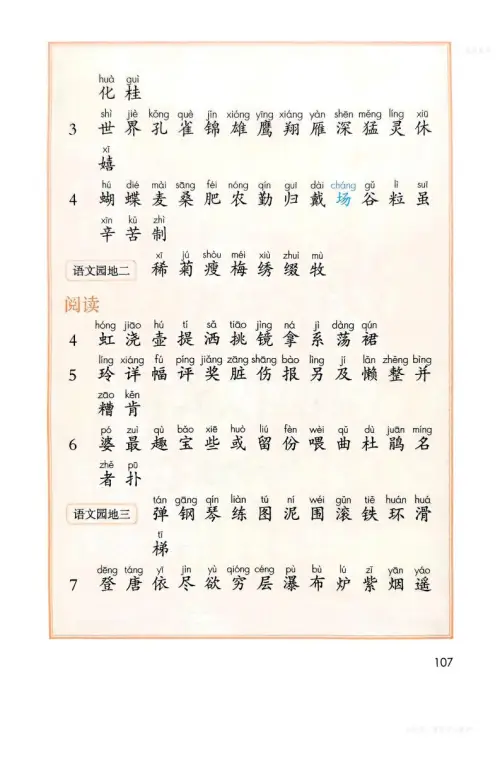 huà guì
化 桂
shì jiè kǒng què jǐn xióng yīng xiáng yàn shēn měng líng xiū
3 世 界 孔 雀 锦 雄 鹰 翔 雁 深 猛 灵 休
xī
嬉
hú dié mài sāng féi nóng qín guī dài cháng gǔ lì suī
4 蝴 蝶 麦 桑 肥 农 勤 归 戴 场 谷 粒 虽
xīn kǔ zhì
辛 苦 制
xī jú shòu méi xiù zhuì mù
语文园地二 稀 菊 瘦 梅 绣 缀 牧
阅读
hóng jiāo hú tí sǎ tiāo jìng ná jì dàng qún
4 虹 浇 壶 提 洒 挑 镜 拿 系 荡 裙
líng xiáng fú píng jiǎng zāng shāng bào lìng jí lǎn zhěng bìng
5 玲 详 幅 评 奖 脏 伤 报 另 及 懒 整 并
zāo kěn
糟 肯
pó zuì qù bǎo xiē huò liú fèn wèi qǔ dù juān míng
6 婆 最 趣 宝 些 或 留 份 喂 曲 杜 鹃 名
zhě pū
者 扑
tán gāng qín liàn tú ní wéi gǔn tiě huán huá
语文园地三 弹 钢 琴 练 图 泥 围 滚 铁 环 滑
tī
梯
dēng táng yī jìn yù qióng céng pù bù lú zǐ yān yáo
7 登 唐 依 尽 欲 穷 层 瀑 布 炉 紫 烟 遥
107